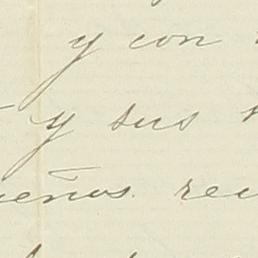 y con
y sus
eños. rec